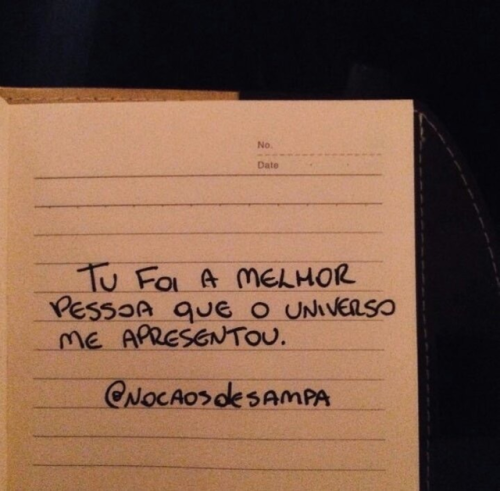 No.
Date
TU FOI A MELHOR
PESSOA QUE O UNIVERSO
ME APRESENTOU.
@NOCAOSdeSAMPA